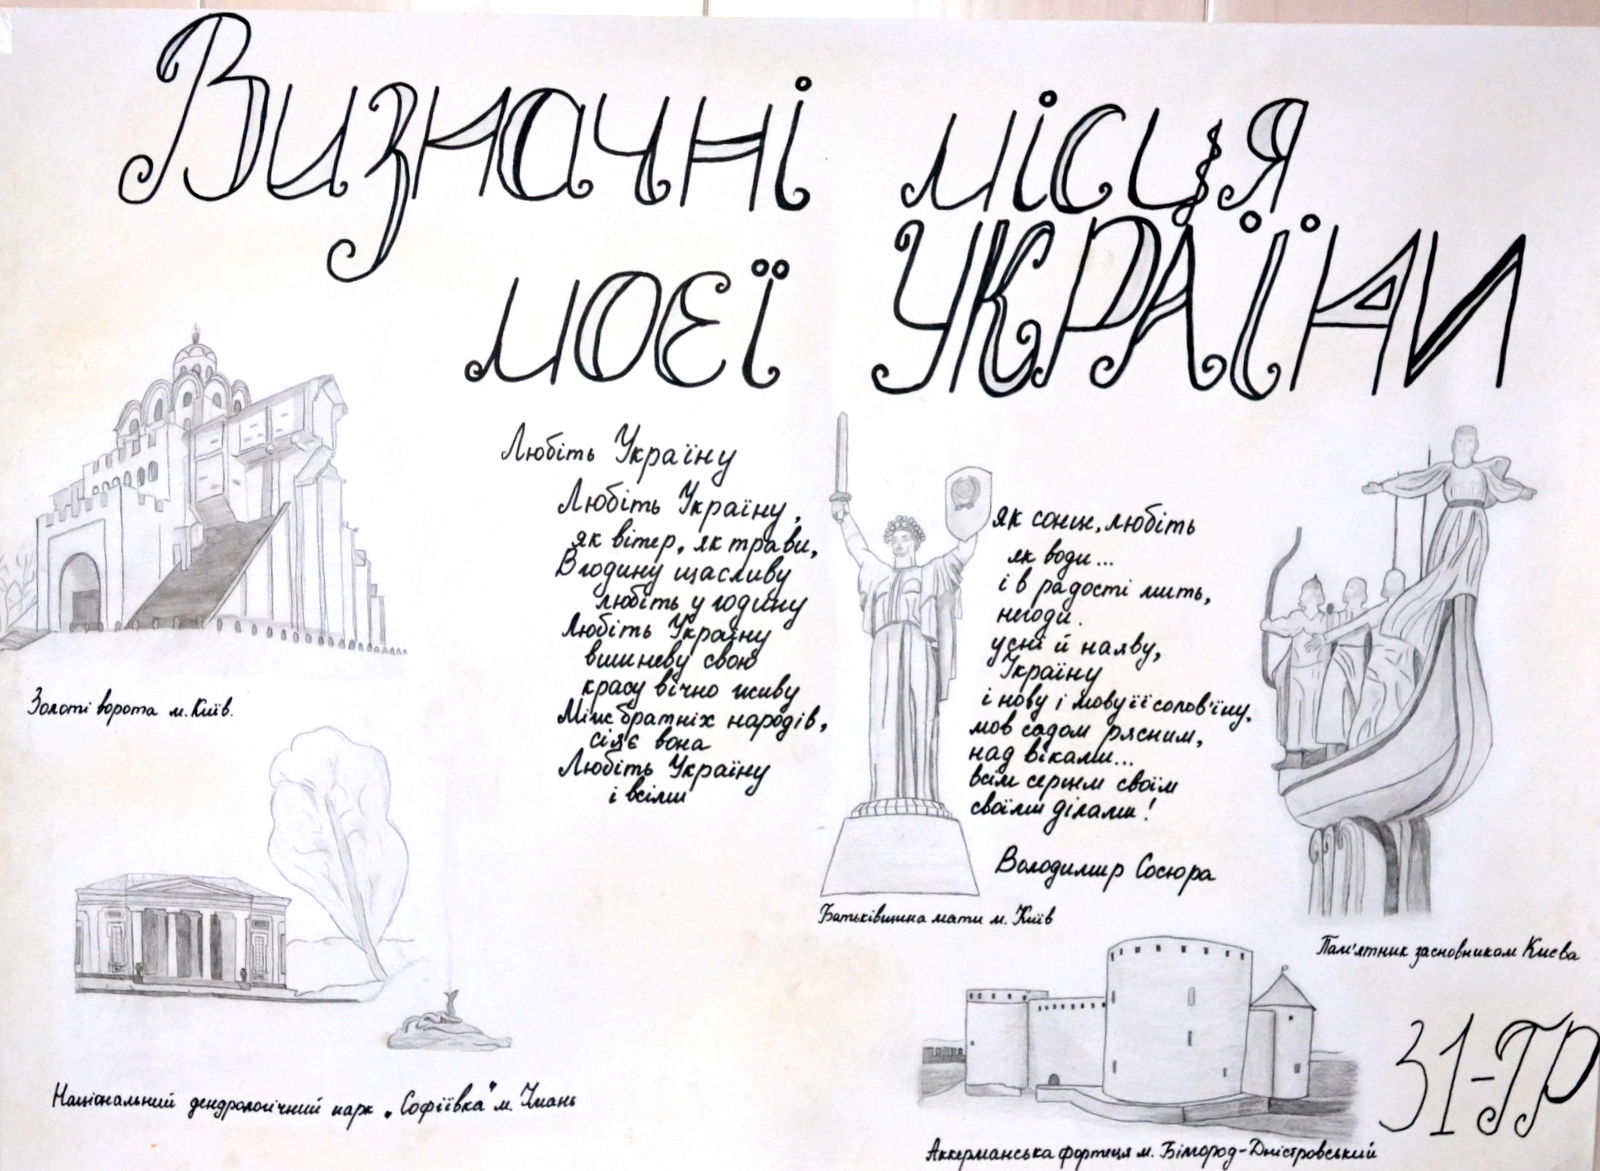 Визначні місця
моєї УКРАЇНИ
Любіть Україну
Любіть Україну,
як вітер, як трави,
В годину щасливу
любіть у годину
Любіть Україну
вишневу свою
красу вічно живу
Між братніх народів,
сіяє вона
Любіть Україну
і всіми
Як сонце, любіть
як води...
і в радості мить,
негоди.
усні й наяву,
Україну
і нову і мову її солов'їну.
мов садом рясним,
над віками...
всім серцем своїм
своїми ділами!
Володимир Сосюра
Золоті ворота м. Київ.
Національний дендрологічний парк „Софіївка" м. Умань
Батьківщина мати м. Київ
Пам'ятник засновникам Києва
Аккерманська фортеця м. Білгород-Дністровський
31-ГР